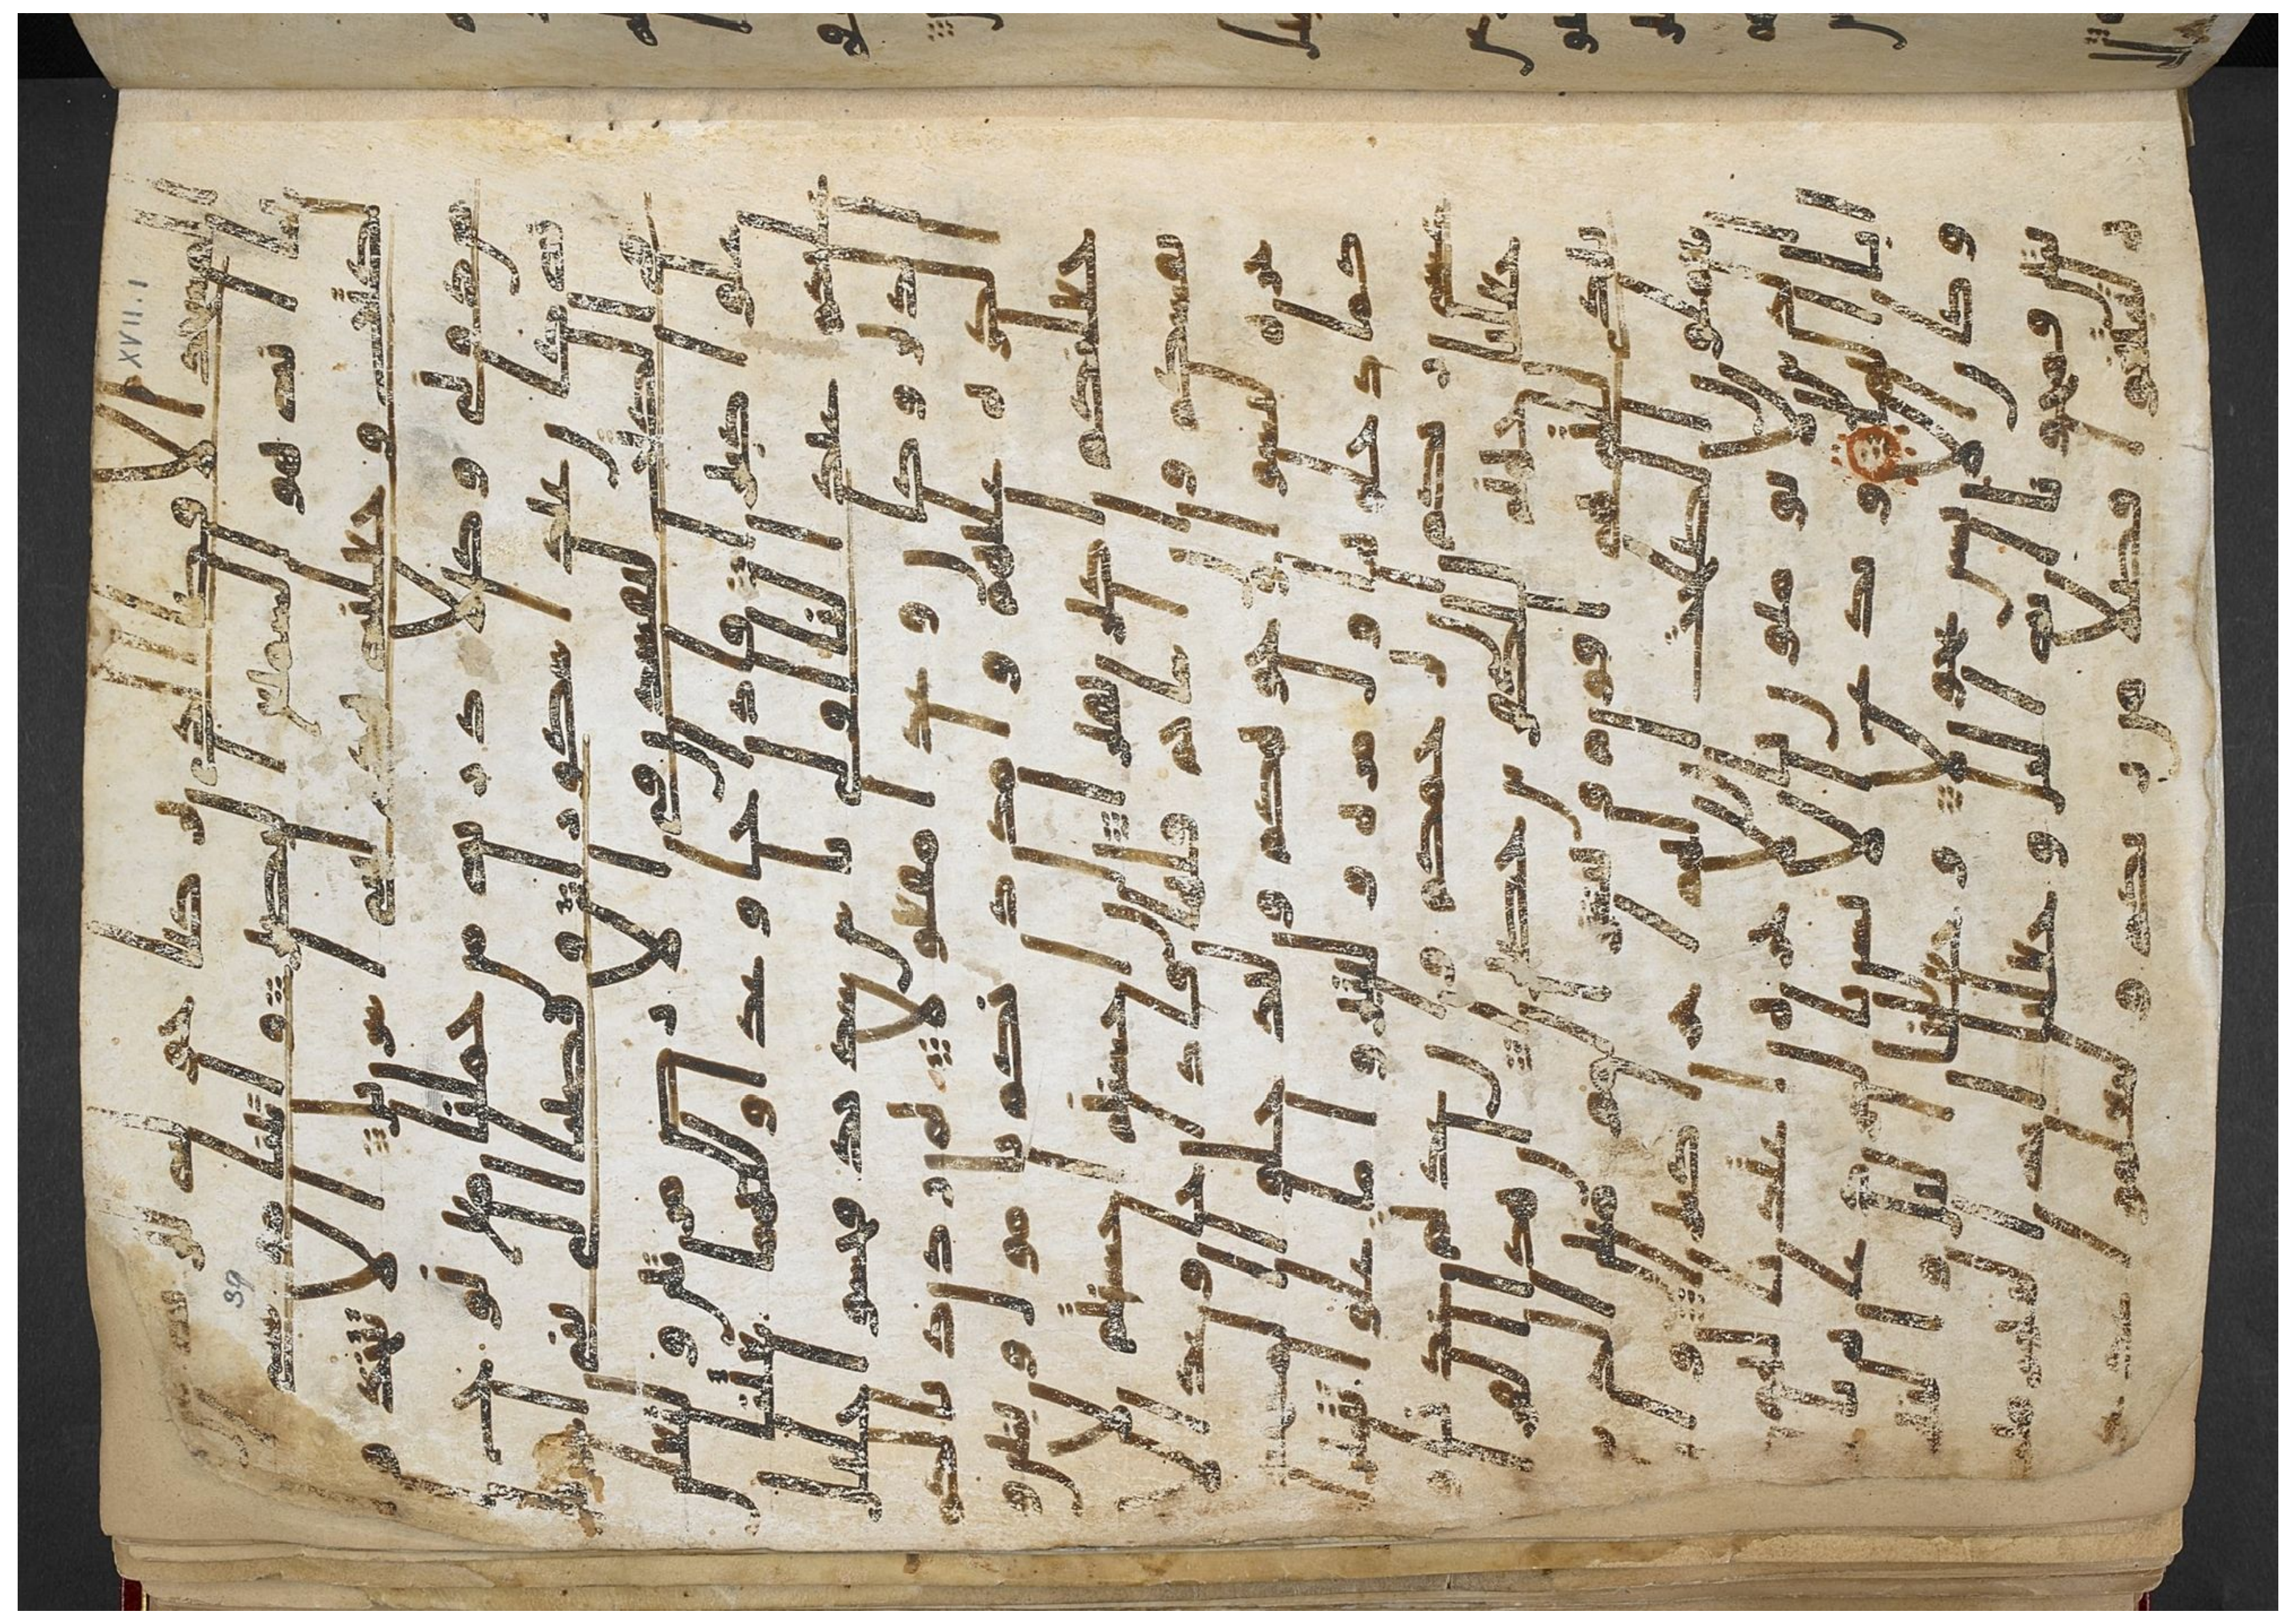 المسجد الاقصا الذي بركنا حوله لنريه من ا
يتنا انه هو السميع البصير و اتينا موسى
الكتب و جعلنه هدى لبنى اسريل الا تتخذوا
من دونى وكيلا ذرية من حملنا مع نوح انه كا
ن عبدا شكورا و قضينا الى بنى اسر
يل فى الكتب لتفسدن فى الارض مرتين و لتعلن
علوا كبيرا فاذا جا وعد اوليهما بعثنا
عليكم عبادا لنا اولى باس شديد فجاسوا خلل
الديار و كان وعدا مفعولا ثم رددنا لكم ا
لكرة عليهم و امددنكم باموال و بنين و
جعلنكم اكثر نفيرا ان احسنتم احسنتم لا
نفسكم و ان اساتم فلها فاذا جا وعد الا
خرة ليسوا وجوهكم و ليدخلوا المسجد
كما دخلوه اول مرة و ليتبروا ما علوا تتبير
ا عسى ربكم ان يرحمكم و ان عدتم عدنا و
جعلنا جهنم للكفرين حصيرا ان هذا القر
ن يهدى للتى هى اقوم و يبشر المومنين الذين
يعملون الصلحت ان لهم اجرا كبيرا و ان ا
لذين لا يومنون بالاخرة اعتدنا لهم عذ
ابا اليما و يدع الانسن بالشر دعاه بالخير
و كان الانسن عجولا و جعلنا اليل و النهر
ايتين فمحونا اية اليل و جعلنا اية النهر مبصرة
لتبتغوا فضلا من ربكم و لتعلموا عدد السنين
XVII.1
39